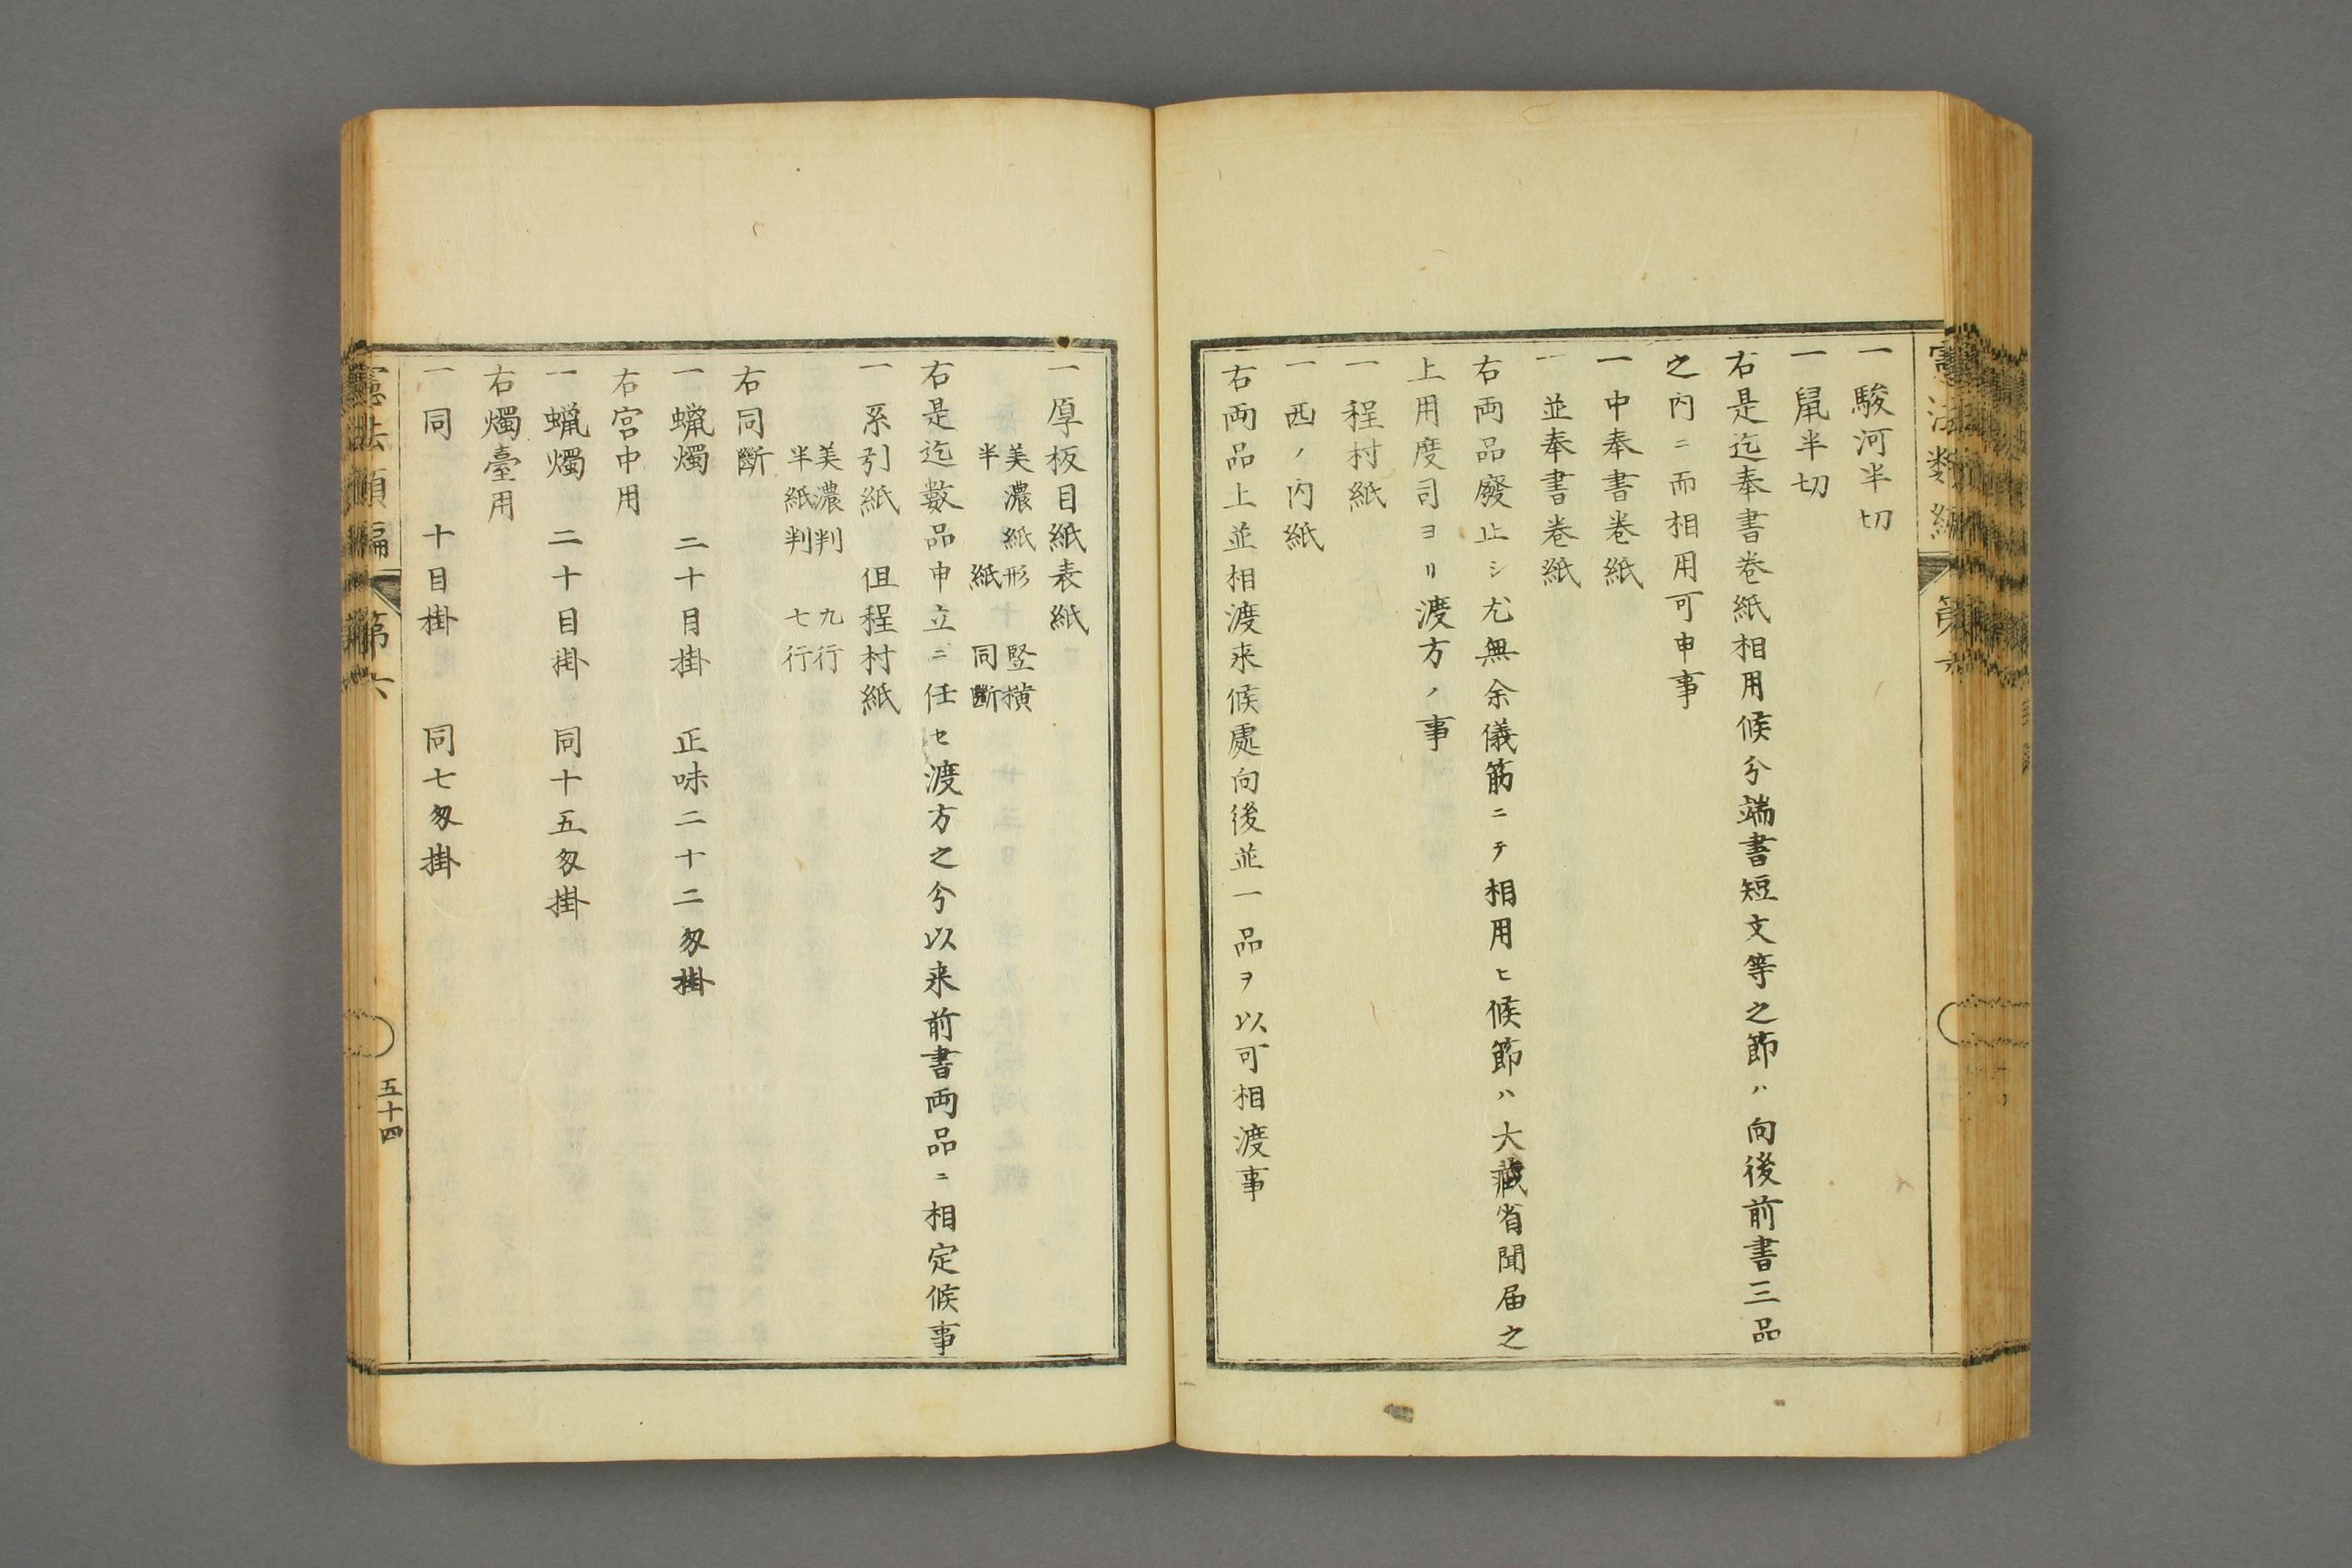 憲法類編
第六
一駿河半切
一鼠半切
右是迄奉書巻紙相用候分端書短文等之節ハ向後前書三品
之内ニ而相用可申事
一中奉書巻紙
一並奉書巻紙
右両品廢止シ尤無余儀筋ニテ相用ヒ候節ハ大藏省聞届之
上用度司ヨリ渡方ノ事
一程村紙
一西ノ内紙
右両品上並相渡来候處向後並一品ヲ以可相渡事
一厚板目紙表紙
美濃紙形 竪横
半紙 同斷
右是迄數品申立ニ任セ渡方之分以来前書両品ニ相定候事
一系引紙 但程村紙
美濃判 九行
半紙判 七行
右同斷
一蝋燭 二十目掛 正味二十二匁掛
右宮中用
一蝋燭 二十目掛 同十五匁掛
右燭臺用
一同 十目掛 同七匁掛
憲法類編
第六
五十四